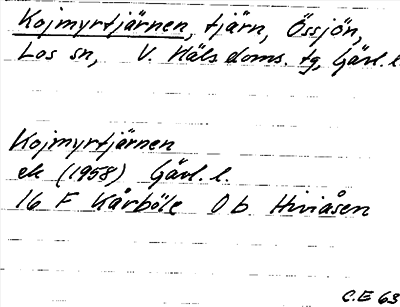 Kojmyrtjärnen, tjärn, Össjön,
Los sn, V. Häls doms. tg, Gävl. l.
Kojmyrtjärnen
ek (1958) Gävl. l.
16 F Kårböle O b Hiviåsen
C.E 63